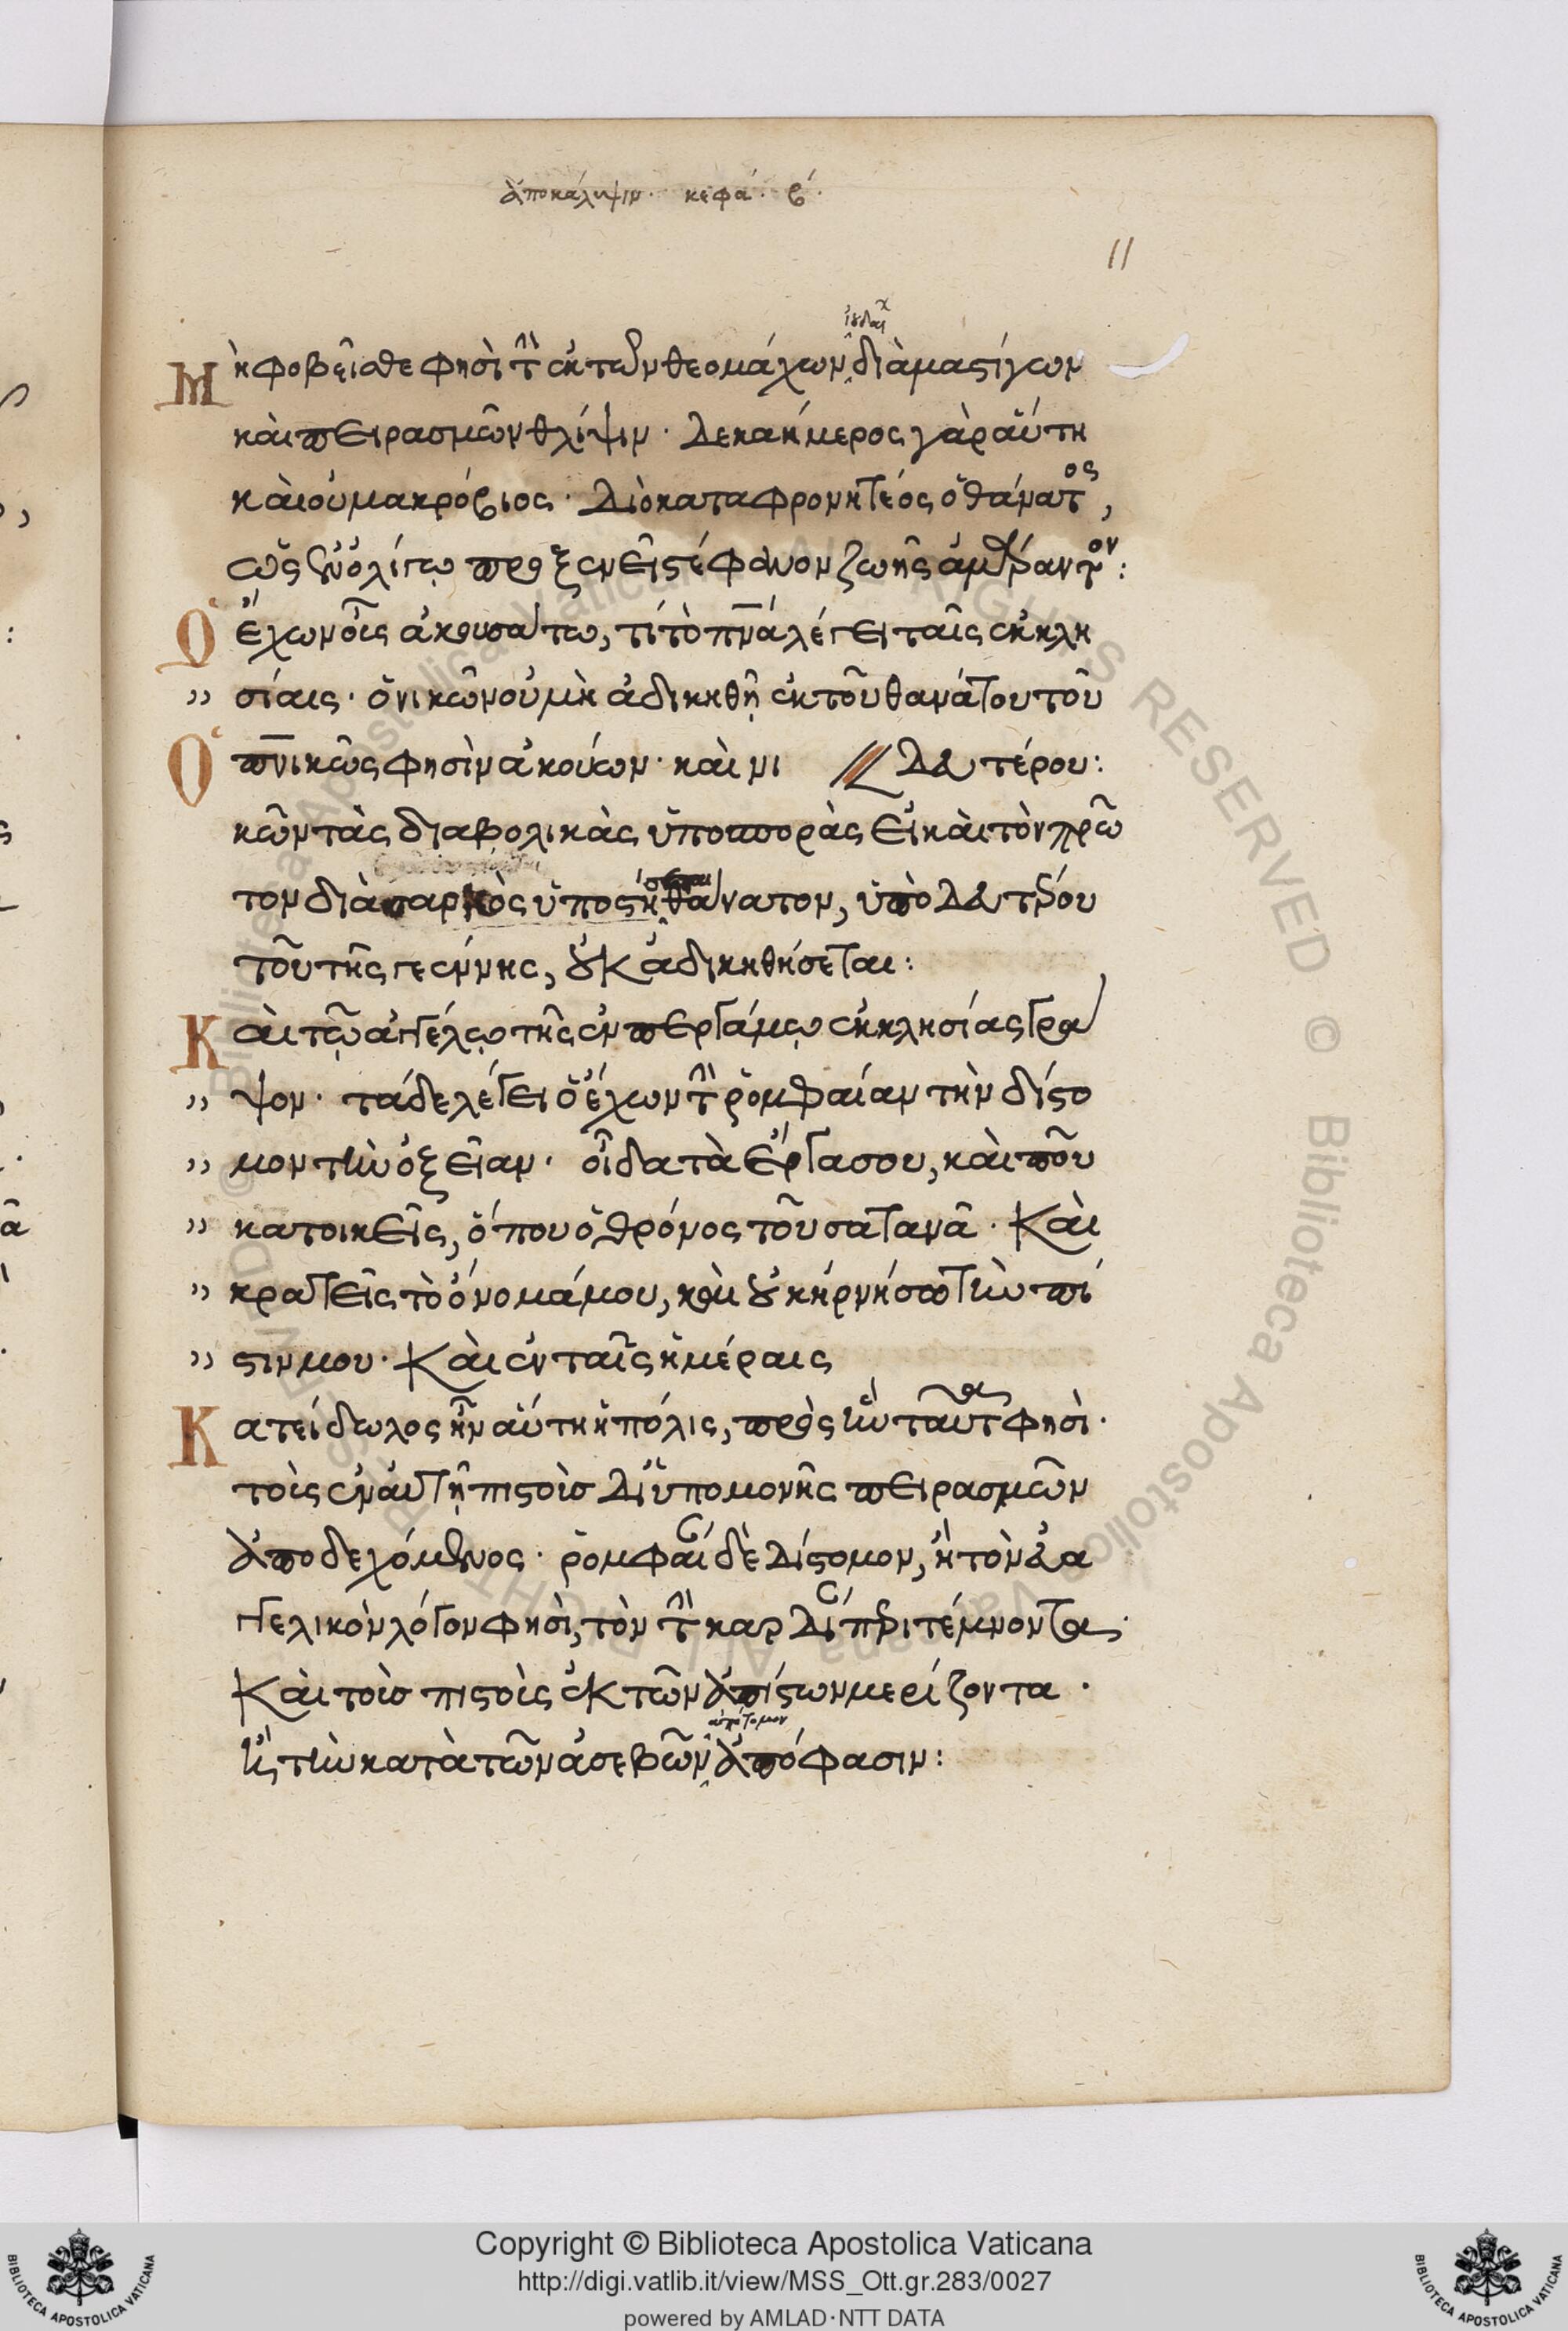 ἀποκάλυψιν. κεφά. β΄.
11
ἰουδαί
Μὴ φοβεῖσθε φησὶ τὴν ἐκ τῶν θεομάχων διὰ μαστίγων
καὶ πειρασμῶν θλίψιν. Δεκαήμερος γὰρ αὕτη
καὶ οὐ μακρόβιος. Διὸ καταφρονητέος ὁ θάνατος,
ὡς ἐν ὀλίγῳ προξενεῖ στέφανον ζωῆς ἀμάραντον:
Ὁ ἔχων οὖς ἀκουσάτω, τί τὸ πνᾶ λέγει ταῖς ἐκκλη
" σίαις. ὁ νικῶν οὐ μὴ ἀδικηθῇ ἐκ τοῦ θανάτου τοῦ
Ὁ πνικῶς φησὶν ἀκούων. καὶ νι // Δευτέρου:
κῶν τὰς διαβολικὰς ὑποσποράς εἰ καὶ τὸν πρῶ
τον διὰ σαρκὸς ὑποστῆ θάνατον, ὑπὸ Δευτέρου
τοῦ τῆς γεέννης, οὐκ ἀδικηθήσεται:
Καὶ τῷ ἀγγέλῳ τῆς ἐν περγάμῳ ἐκκλησίας γρα
" ψον. τάδε λέγει ὁ ἔχων τὴν ῥομφαίαν τὴν δίστο
" μον τὴν ὀξεῖαν. οἶδα τὰ ἔργα σου, καὶ ποῦ
" κατοικεῖς, ὅπου ὁ θρόνος τοῦ σατανᾶ. Καὶ
" κρατεῖς τὸ ὄνομά μου, καὶ οὐκ ἠρνήσω τὴν πί
" στιν μου. Καὶ ἐν ταῖς ἡμέραις
Κατείδωλος ἦν αὕτη ἡ πόλις, πρὸς ἣν ταῦτα φησὶ.
τοὺς ἐν αὐτῇ πιστοὺς Δι' ὑπομονῆς πειρασμῶν
ἀποδεχόμενος. ῥομφαίαν δὲ Δίστομον, ἢ τὸν εὐα
γγελικὸν λόγον φησὶ, τὸν τὴν καρδίαν περιτέμνοντα.
Καὶ τοὺς πιστοὺς ἐκ τῶν ἀπίστων μερίζοντα.
ἀπότομον
ἢ τὴν κατὰ τῶν ἀσεβῶν ἀπόφασιν:
Copyright © Biblioteca Apostolica Vaticana
http://digi.vatlib.it/view/MSS_Ott.gr.283/0027
powered by AMLAD·NTT DATA